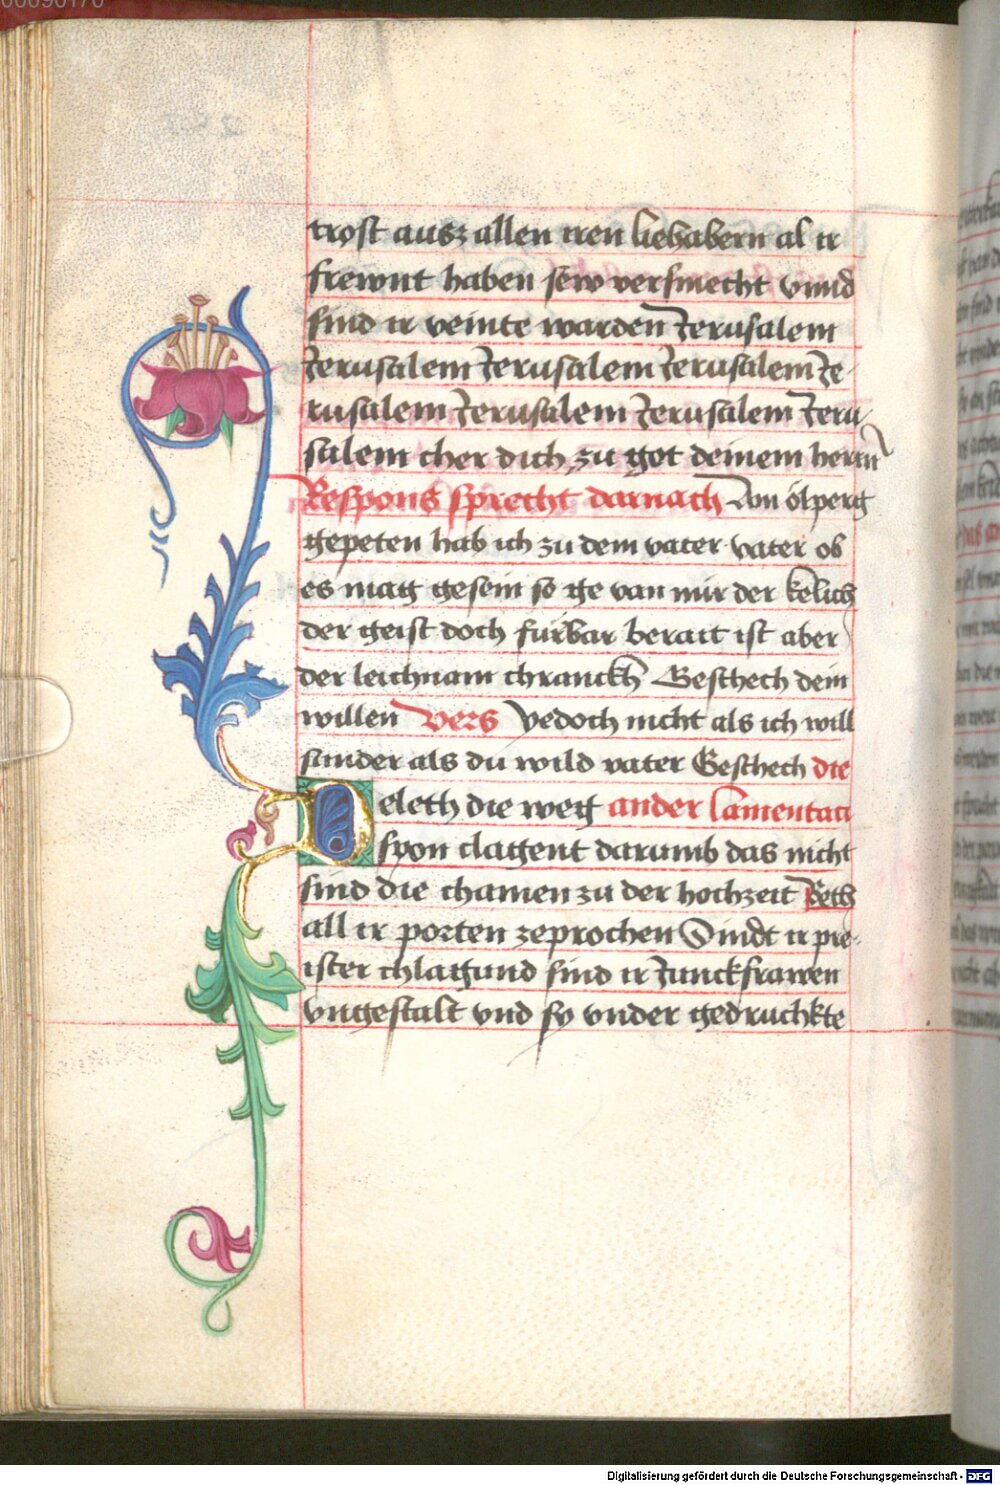 00090170
trost ausz allen iren liebhabern al ir
frewnt haben sew versmecht vnnd
sind ir veinte warden Jerusalem
Jerusalem Jerusalem Jerusalem Je
rusalem Jerusalem Jerusalem Jeru
salem cher dich zu got deinem herrn
Respons sprecht darnach Am ölperg
gepeten hab ich zu dem vater vater ob
es mag gesein so ge van mir der kelich
der geist doch furbar berait ist aber
der leichnam chranckh Geschech dein
willen Vers Yedoch nicht als ich will
sunder als du wild vater Geschech die
Deleth die weg ander lamentaci
syon clagent darumb das nicht
sind die chamen zu der hochzeit Beth
all ir porten zeprochen Sindt ir prie
ister chlagund sind ir Junckfrawen
vngestalt vnd sy vnder gedruchkte
Digitalisierung gefördert durch die Deutsche Forschungsgemeinschaft - DFG